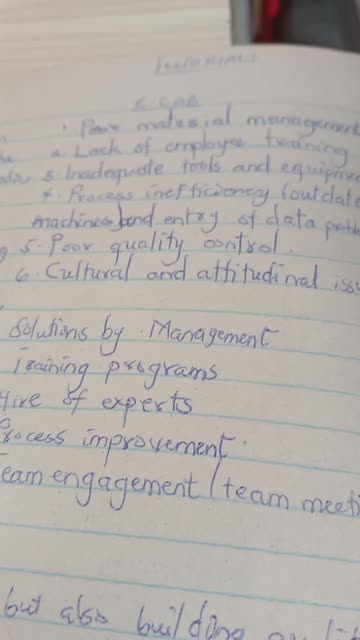 TUTORIALS
1. Poor material management
2. Lack of employee training
3. Inadequate tools and equipme
4. Process inefficiency (outdate
machines) and entry of data
5. Poor quality control.
6. Cultural and attitudinal iss
Solutions by Management
Training programs
Hire of experts
Process improvement.
eam engagement / team meeti
but also building